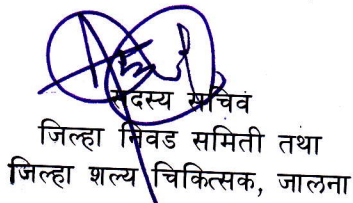 सदस्य सचिव
जिल्हा निवड समिती तथा
जिल्हा शल्य चिकित्सक, जालना